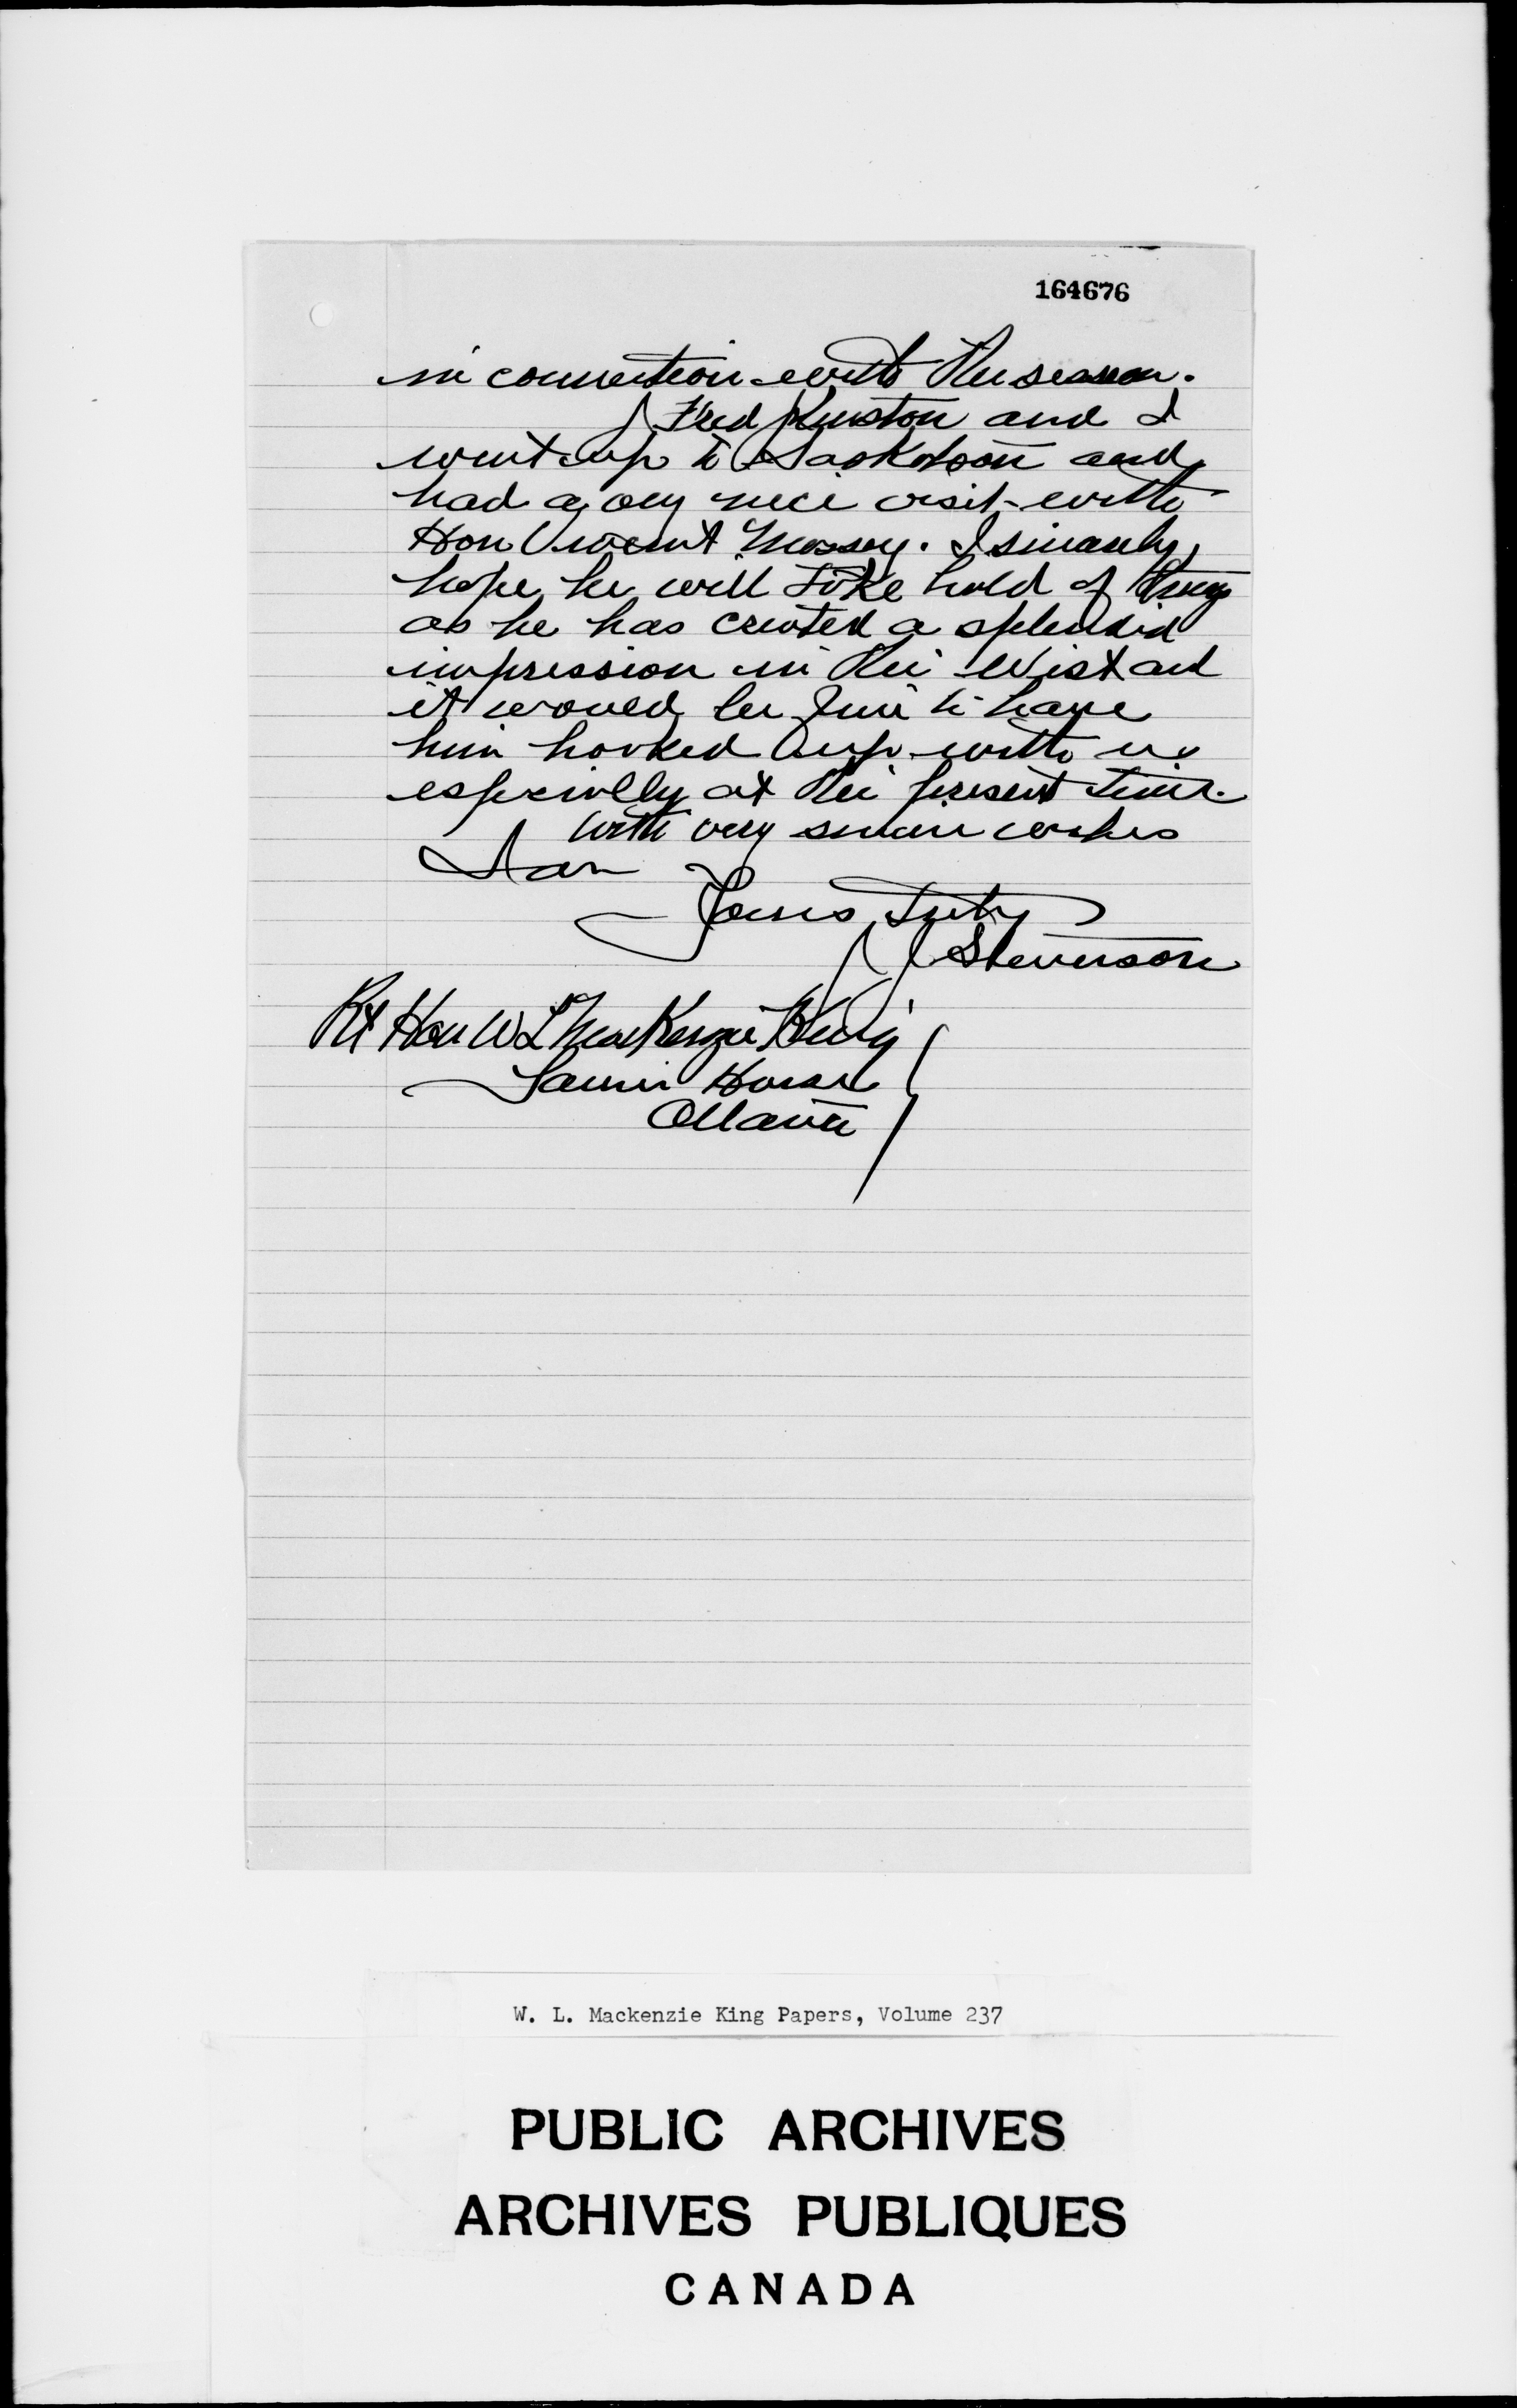 164676
in connection with the season.
Fred Kinston and I
went up to Saskatoon and
had a very nice visit with
Hon Vincent Massey. I sincerely
hope he will take hold of things
as he has created a splendid
impression in the West and
it would be fine to have
him hooked up with us
especially at the present time.
With very sincere wishes
I am
Yours Truly
J J Stevenson
Rt Hon W L MacKenzie King
Laurier House
Ottawa
W. L. Mackenzie King Papers, Volume 237
PUBLIC ARCHIVES
ARCHIVES PUBLIQUES
CANADA